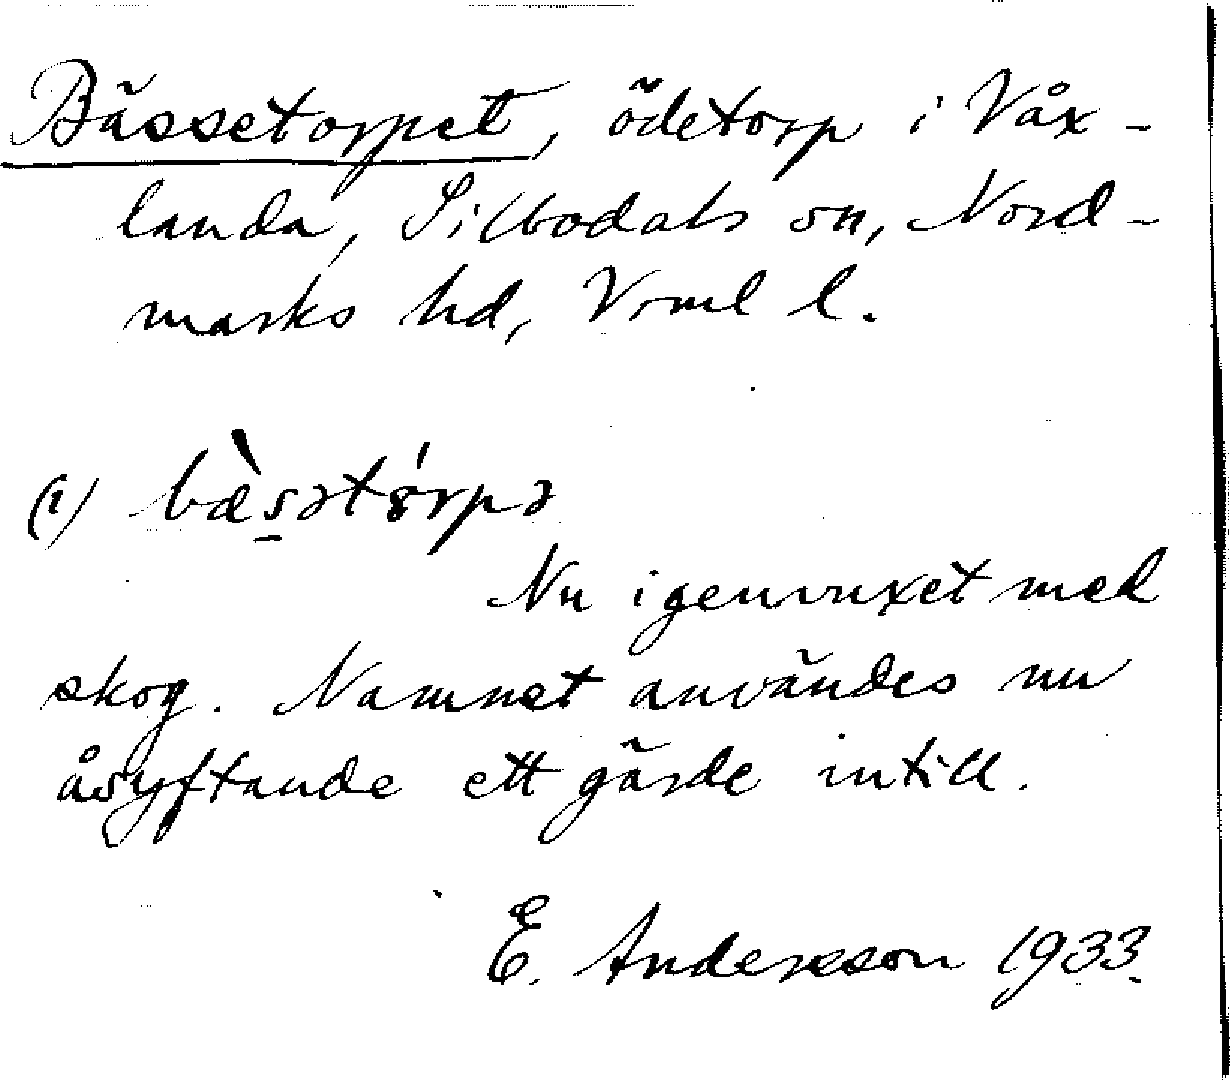 Bässetorpet, ödetorp i Våx-
landa, Silbodals sn, Nord-
marks hd, Vrml l.
(i) bæ̀s̠ətórpə
Nu igenvuxet med
skog. Namnet användes nu
åsyftande ett gärde intill.
E. Andersson 1933.